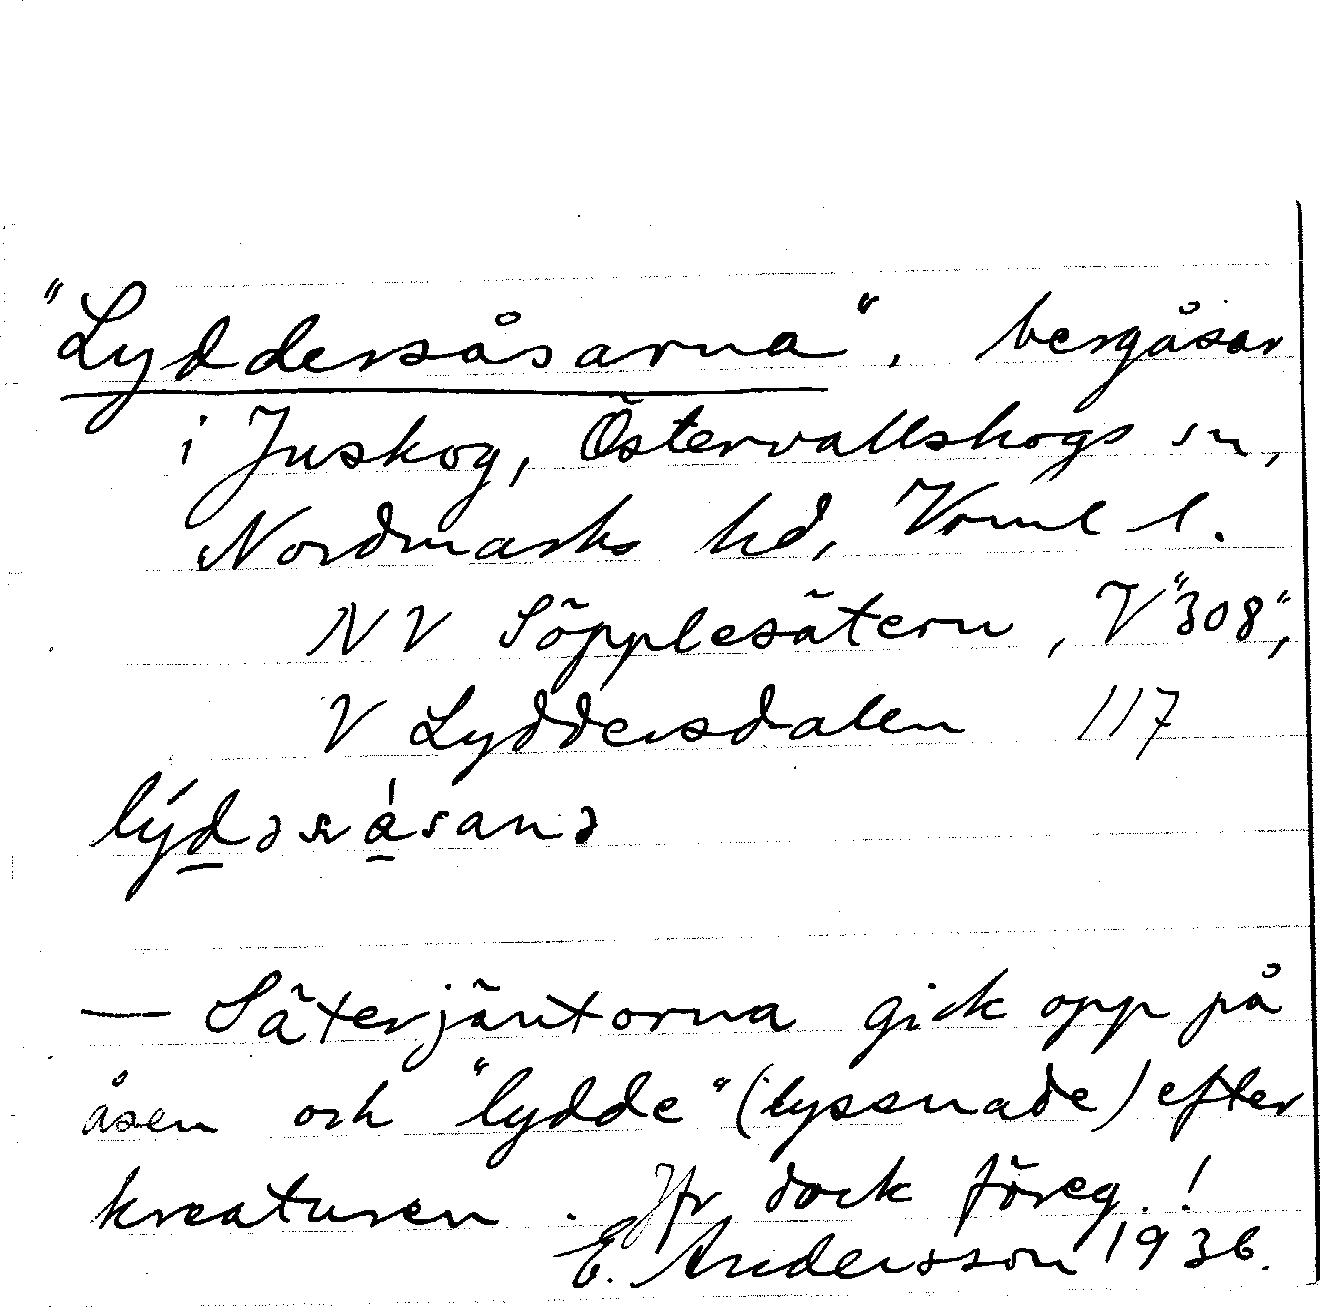 "Lyddersåsarna", bergåsar
i Juskog, Östervallskogs sn,
Nordmarks hd, Vrml l.
NV Söpplesätern, V "308",
V Lyddersdalen 117
— Säterjäntorna gick opp på
åsen och "lydde" (lyssnade) efter
kreaturen. Jfr dock föreg.!
E. Andersson 1936.